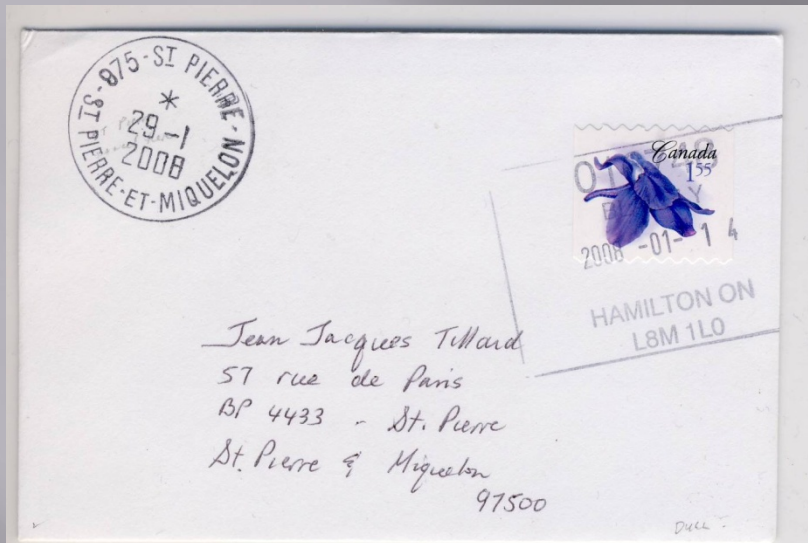 975-ST PIERRE-
*
29-1
2008
ST PIERRE-ET-MIQUELON-
Canada
1.55
2008-01-14
HAMILTON ON
L8M 1L0
Jean Jacques Tillard
57 rue de Paris
BP 4433 - St. Pierre
St. Pierre & Miquelon
97500
Dull